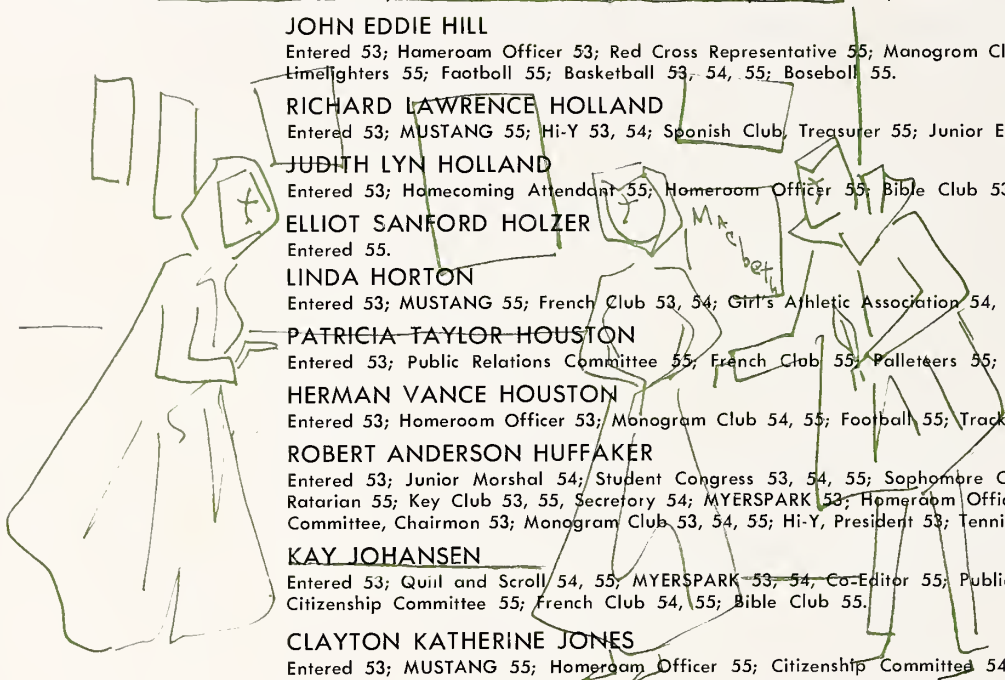 JOHN EDDIE HILL
Entered 53; Hameroam Officer 53; Red Cross Representative 55; Manogrom Cl
Limelighters 55; Faotboll 55; Basketball 53, 54, 55; Boseboll 55.
RICHARD LAWRENCE HOLLAND
Entered 53; MUSTANG 55; Hi-Y 53, 54; Sponish Club, Treasurer 55; Junior E
JUDITH LYN HOLLAND
Entered 53; Homecoming Attendant 55; Homeroom Officer 55; Bible Club 53
ELLIOT SANFORD HOLZER
Entered 55.
Macbeth
LINDA HORTON
Entered 53; MUSTANG 55; French Club 53, 54; Girl's Athletic Association 54,
PATRICIA TAYLOR HOUSTON
Entered 53; Public Relations Committee 55; French Clob 55; Palleteers 55;
HERMAN VANCE HOUSTON
Entered 53; Homeroom Officer 53; Monogram Club 54, 55; Football 55; Track
ROBERT ANDERSON HUFFAKER
Entered 53; Junior Morshal 54; Student Congress 53, 54, 55; Sophomore C
Ratarian 55; Key Club 53, 55, Secretory 54; MYERSPARK 53; Homeroom Offic
Committee, Chairmon 53; Monogram Club 53, 54, 55; Hi-Y, President 53; Tenni
KAY JOHANSEN
Entered 53; Quill and Scroll 54, 55; MYERSPARK 53, 54, Co-Editor 55; Public
Citizenship Committee 55; French Club 54, 55; Bible Club 55.
CLAYTON KATHERINE JONES
Entered 53; MUSTANG 55; Homeroam Officer 55; Citizenship Committee 54